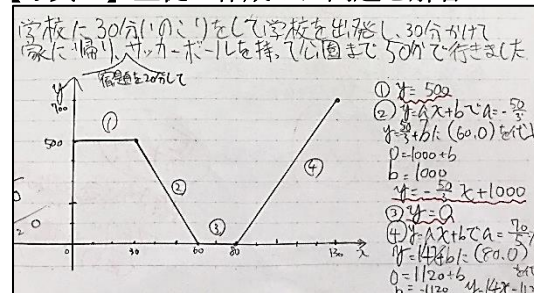 学校に30分いのこりをして学校を出発し、30分かけて
家に帰り、サッカーボールを持って公園まで50分で行きました
宿題を20分して
y
700
500
①
②
③
④
0
30
60
80
130
x
① y=500
② y=ax+bでa=-50/3
0=1000+b
b=1000
y=-50/3x+1000
③ y=0
④ y=ax+bでa=70/5
y=14x+bに(80.0)
0=1120+b